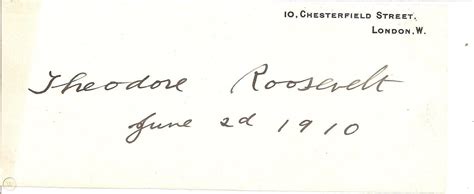 10, CHESTERFIELD STREET,
LONDON. W.
Theodore Roosevelt
June 2d 1910